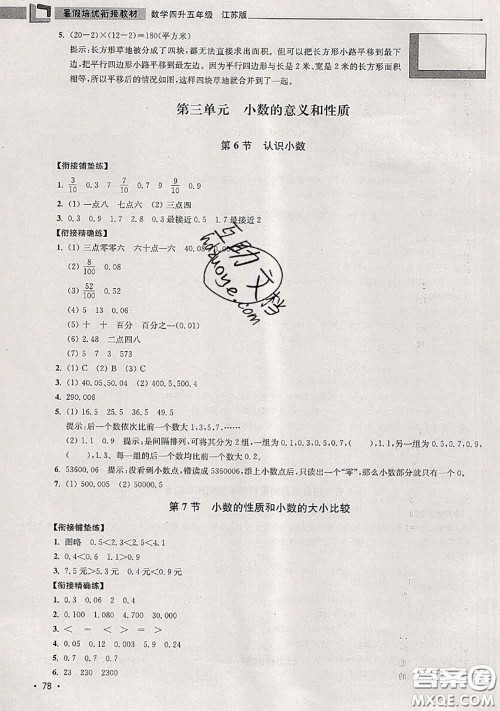 暑假培优衔接教材 数学四升五年级 江苏版
5. (20-2)×(12-2)=180(平方米)
提示:长方形草地被分成了四块,都无法直接求出面积。但可以把长方形平移到最下边,
把平行四边形小路平移到最左边。因为平行四边形与长是 2 米、宽是 2 米的长方形面积
相等,所以平移后的情况如图,这样四块草地就合并到了一起。
第三单元 小数的意义和性质
第 6 节 认识小数
【衔接铺垫练】
1. 3/10 0.3 7 7/10 0.7 9 9/10 0.9
2. (1) 一点八 七点六 (2) 三点四
3. 0.3 0.7 0.9 1.2 1.7 0.3最接近0.5 1.7最接近2
【衔接精确练】
1. (1) 三点零零六 六十点一六 40.08
(2) 8/100 0.08
(3) 52/100 0.52
(4) 5 13 0.08
(5) 十 十 百分 百分之一(0.01)
(6) 2.48 二点四八
(7) 5 7 3 573
2. (1) B (2) C (3) C
3. (1) 40.05,50.04 (2) 400.5,500.4
4. 290.006
5. (1) 16.5 25.5 36.5
提示:后一个数依次比前一个数大 1,3,5,7,……
(2) 1.1 0.9 提示:是间隔排列,可将其分为 2 组,一组为 0.1,0.3,0.5,0.7,( )
( ),一组为 0.5,0.7,0.9,( ),( )。每一组的后一个数均比前一个数大 0.2。
6. 53600.06 提示:没看到小数点,错读成 5360006,添上小数点后,只读出一个“零”,那么小数部分就只有一个 0。
7. (1) 500.005 (2) 50005.5
第 7 节 小数的性质和小数的大小比较
【衔接铺垫练】
1. 图略 0.5<2.3<2.5<4.5
2. 0.4<0.6 1.3>1.2
3. 7.5元>5.3元>2.8元
【衔接精确练】
1. 0.8
2. 0.100 1.080 4.700 30.000 0.400
3. < = < > = >
4. 0.05 0.12 0.053 0.06 5.9 0.3
5. 0.33 0.34 0.35 0.36
6. 23 230 2300
· 78 ·
互助文档
hzuoye.com
答案圈
MXQE.COM